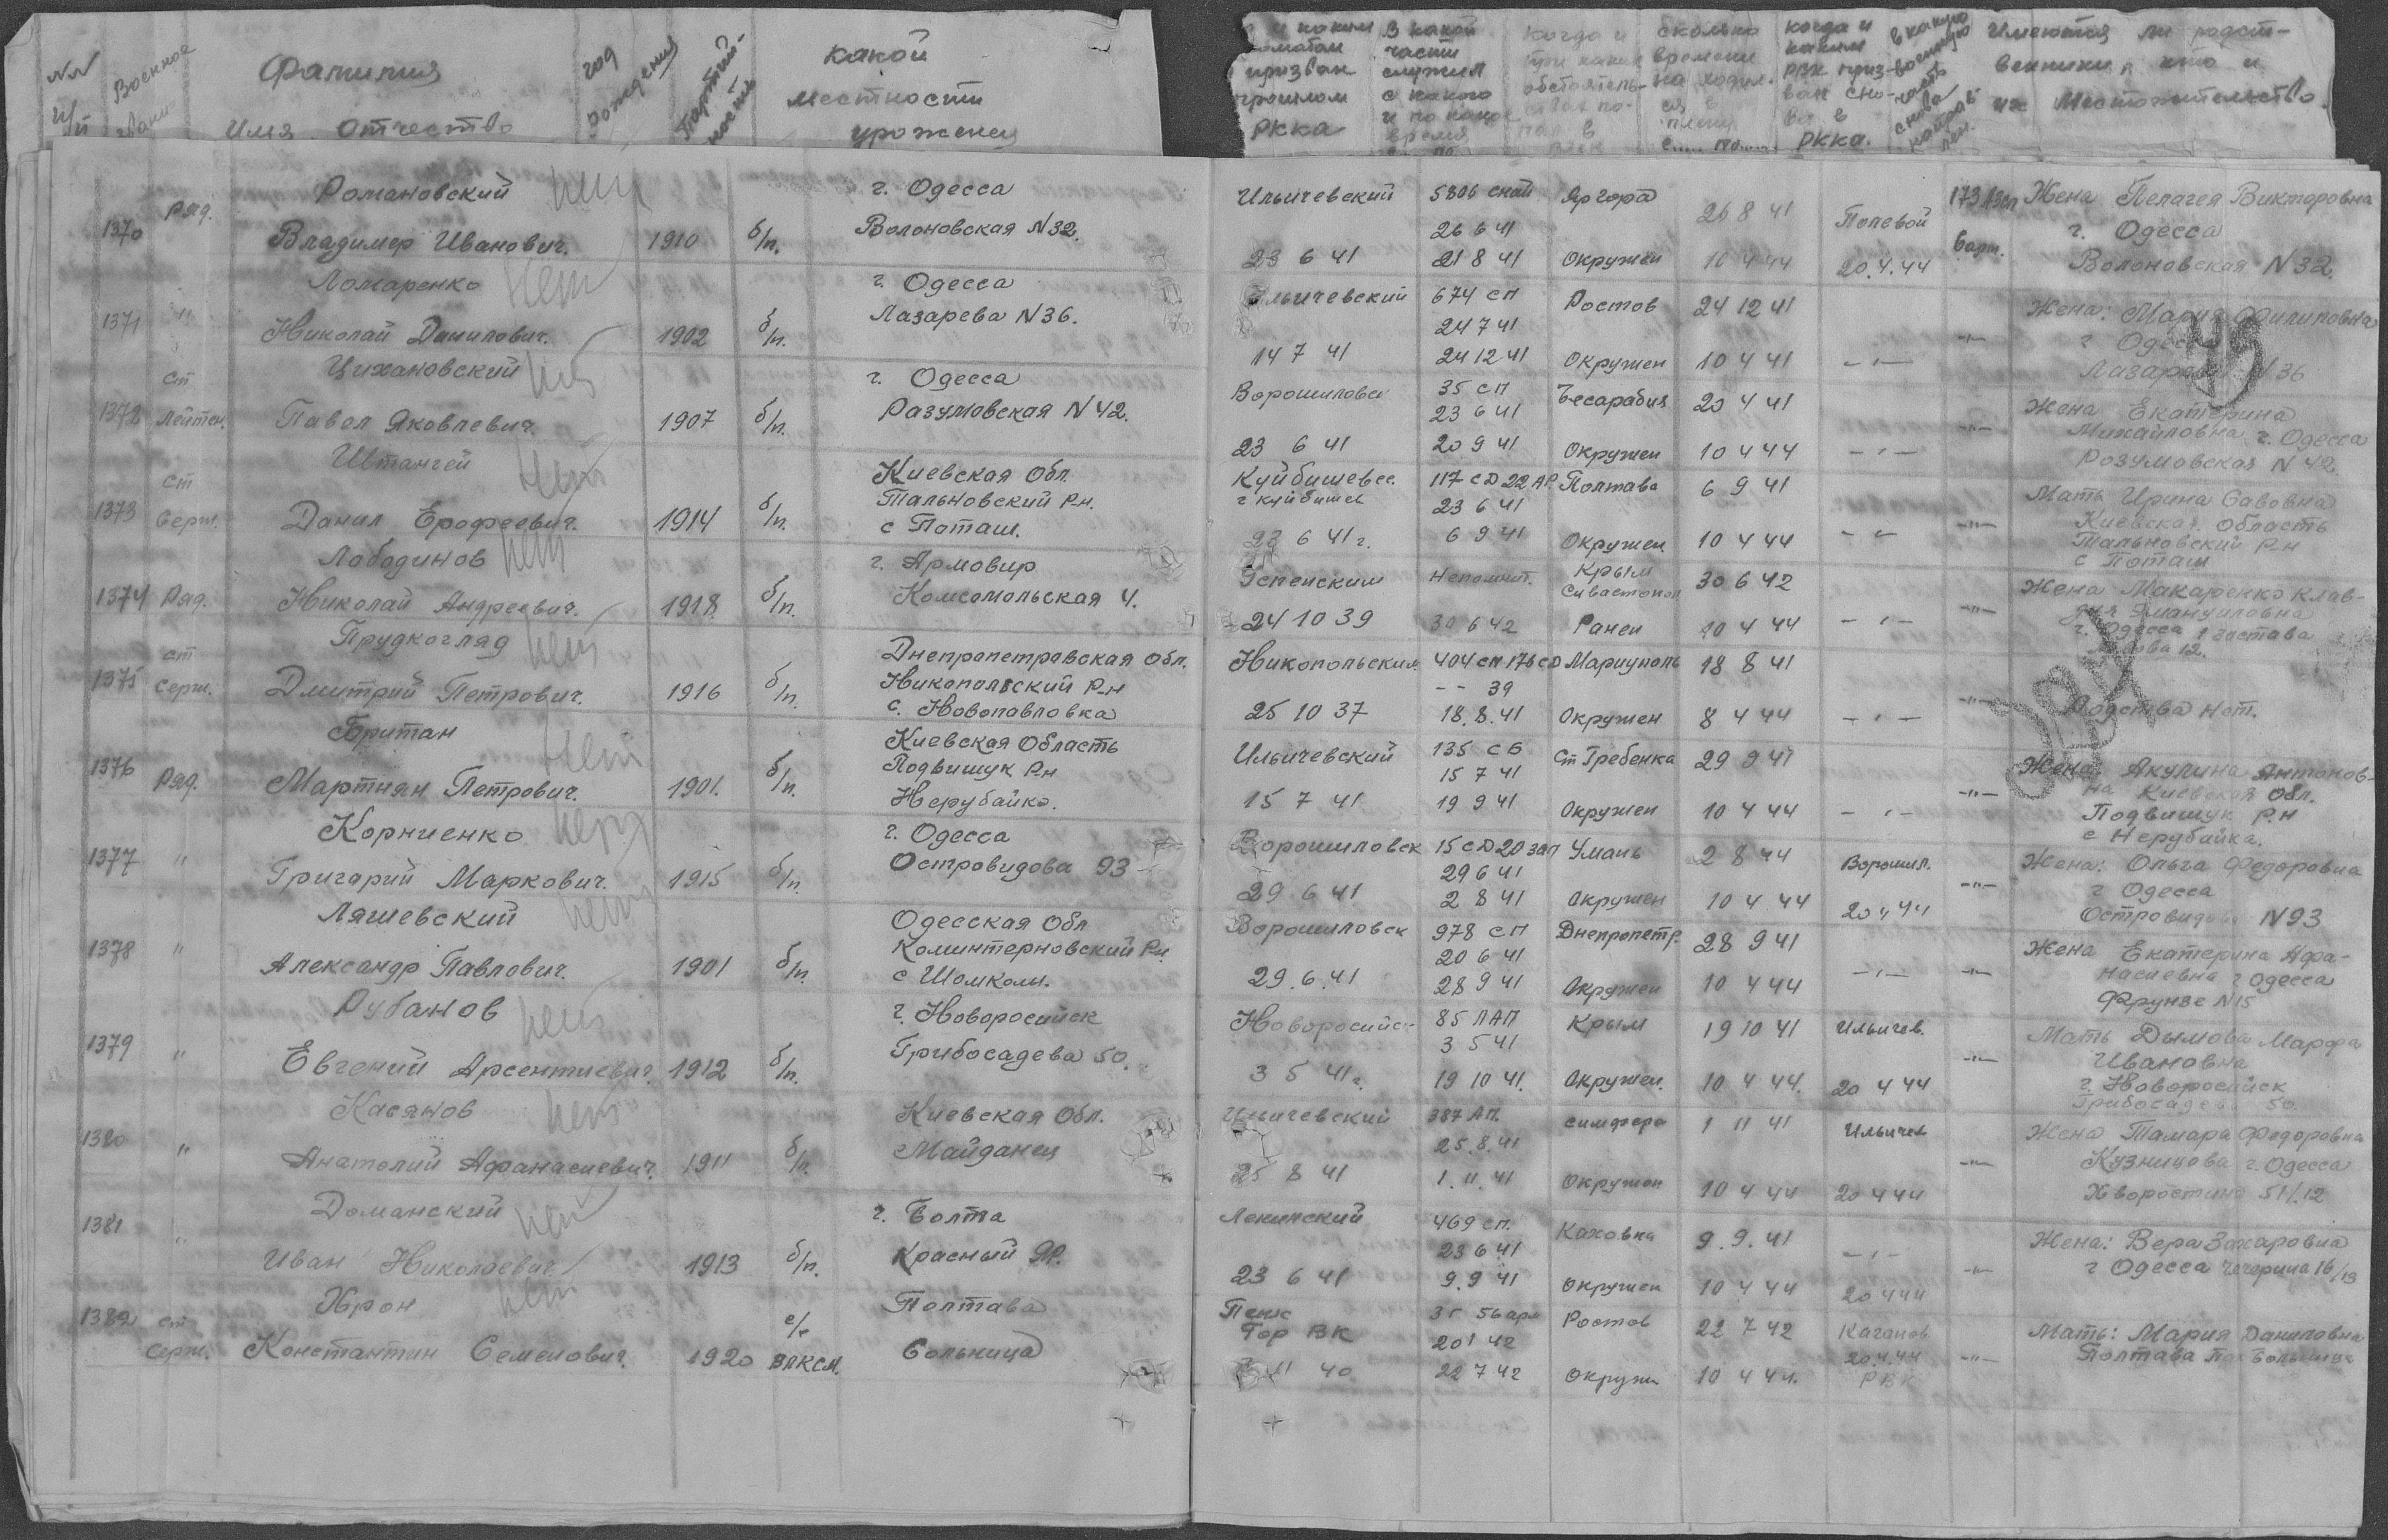 NN п/п
Военное звание
Фамилия
имя отчество
год рождения
Партийность
какой
местности
уроженец
и каким
призван
прошлом
РККА
В какой
части
служил
с какого
и по какое
время
когда и
при каких
обстоятель-
ствах по-
пал в
плен
сколько
времени
находил-
ся в
плену
с.... по....
когда и
каким
РВК приз-
ван сно-
ва в
РККА.
в какую
военную
часть
снова
Имеются ли родст-
венники, кто и
их Местожительство.
1370 ряд.
Романовский нет
Владимер Иванович. 1910 б/п.
г. Одесса
Волоновская N 32.
Ильичевский
23 6 41
5806 снаб
26 6 41
21 8 41
Яргора
Окружен
26 8 41
10 4 44
Полевой
20.4.44
173
Жена Пелагея Викторовна
г. Одесса
Волоновская N 32
1371 "
Ломаренко нет
Николай Данилович. 1902 б/п.
г. Одесса
Лазарева N 36.
Ильичевский
14 7 41
674 сп
24 7 41
24 12 41
Ростов
Окружен
24 12 41
10 4 41
-"-
-"-
Жена: Мария Филиповна
г Одесса
Лазарева N 36
49
1372 ст Лейтен.
Цихановский нет
Павел Яковлевич. 1907 б/п.
г. Одесса
Разумовская N 42.
Ворошиловск
23 6 41
35 сп
23 6 41
20 9 41
Бесарабия
Окружен
20 4 41
10 4 44
-"-
-"-
Жена Екатерина
Михайловна г. Одесса
Розумовская N 42
1373 ст Серж.
Штангей нет
Данил Ерофеевич. 1914 б/п.
Киевская Обл.
Тальновский Р-н.
с Поташ.
Куйбишевс.
г куйбишев
23 6 41 г.
117 сд 22 АР
23 6 41
6 9 41
Полтава
Окружен
6 9 41
10 4 44
-"-
-"-
Мать Ирина Савовна
Киевская область
Тальновский Р-н
с Поташ
1374 Ряд.
Лободинов нет
Николай Андреевич. 1918 б/п.
г. Армовир
Комсомольская 4.
Успенский
24 10 39
Непомнит.
30 6 42
Крым
Сивастопол
Ранен
30 6 42
10 4 44
-"-
-"-
Жена Макаренко Клав-
дия Эмануиловна
г. Одесса 1 застава
12.
1375 ст серж.
Прудкогляд нет
Дмитрий Петрович. 1916 б/п.
Днепропетровская Обл.
Никопольский Р-н
с. Новопавловка
Никопольский
25 10 37
404 сп 176 сд
-- 39
18.8.41
Мариуполь
Окружен
18 8 41
8 4 44
-"-
-"-
Родства нет.
1376 ряд.
Британ нет
Мартиян Петрович. 1901. б/п.
Киевская Область
Подвишук Р-н
Нерубайко.
Ильичевский
15 7 41
135 сб
15 7 41
19 9 41
Ст Гребенка
Окружен
29 9 41
10 4 44
-"-
-"-
Жена: Акулина Антонов-
на Киевская Обл.
Подвишук Р.н
с Нерубайка.
1377 "
Корниенко
Григарий Маркович. 1915 б/п.
г. Одесса
Островидова 93
Ворошиловск
29 6 41
15 сд 20 зап
29 6 41
2 8 41
Умань
Окружен
2 8 44
10 4 44
Ворошил.
20 4 44
-"-
Жена: Ольга Федоровна
г Одесса
Островидова N 93
1378 "
Ляшевский нет
Александр Павлович. 1901 б/п.
Одесская Обл
Коминтерновский Р-н.
с Шомколы.
Ворошиловск
29.6.41
978 сп
20 6 41
28 9 41
Днепропетр.
Окружен
28 9 41
10 4 44
-"-
-"-
Жена Екатерина Афа-
насиевна г Одесса
Фрунзе N 15
1379 "
Рубанов нет
Евгений Арсентиевич. 1912 б/п.
г. Новоросийск
Грибосадева 50.
Новоросийск
3 5 41 г.
85 ЛАП
3 5 41
19 10 41.
Крым
Окружен.
19 10 41
10 4 44.
Ильичев.
20 4 44
-"-
Мать Дымова Марфа
Ивановна
г. Новоросийск
Грибосадева 50
1380 "
Касянов нет
Анатолий Афанасиевич. 1911 б/п.
Киевская Обл.
Майданец
Ильичевский
25 8 41
387 АП.
25.8.41
1.11.41
симфера
Окружен
1 11 41
10 4 44
Ильичев
20 4 44
-"-
Жена Тамара Федоровна
Кузницова г. Одесса
Хворостина 51/12
1381 "
Доманский нет
Иван Николаевич 1913 б/п.
г. Болта
Красный Яр.
Ленинский
23 6 41
469 сп.
23 6 41
9.9 41
Каховка
Окружен
9.9.41
10 4 44
-"-
20 4 44
-"-
Жена: Вера Захаровна
г Одесса Чечерина 16/13
1382 ст серж.
Хрон нет
Константин Семенович. 1920 ВЛКСМ.
Полтава
Больница
Гор ВК
11 40
56 арм
20 1 42
22 7 42
Ростов
Окружи
22 7 42
10 4 44.
Каганов.
20.4.44
РВК
-"-
Мать: Мария Даниловна
Полтава Больница